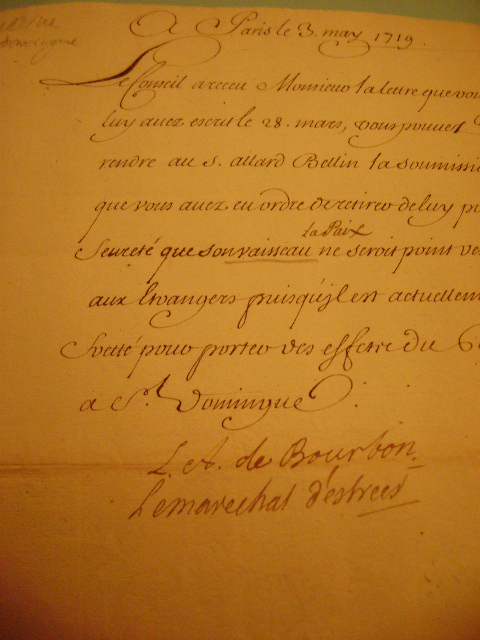 Domingue
A Paris le 3. may 1719.
Le Conseil a receu Monsieur la lettre que vou
luy avez escrit le 28. mars, vous pouvez
rendre au S. allard Bellin la soumissi
que vous avez eu ordre de retirer de luy p
la Paix
Seureté que son vaisseau ne seroit point ve
aux Etrangers puisqu'jl est actuellem
fretté pour porter des effets du
a St. Domingue.
L. A. de Bourbon
Le marechal d'estrees